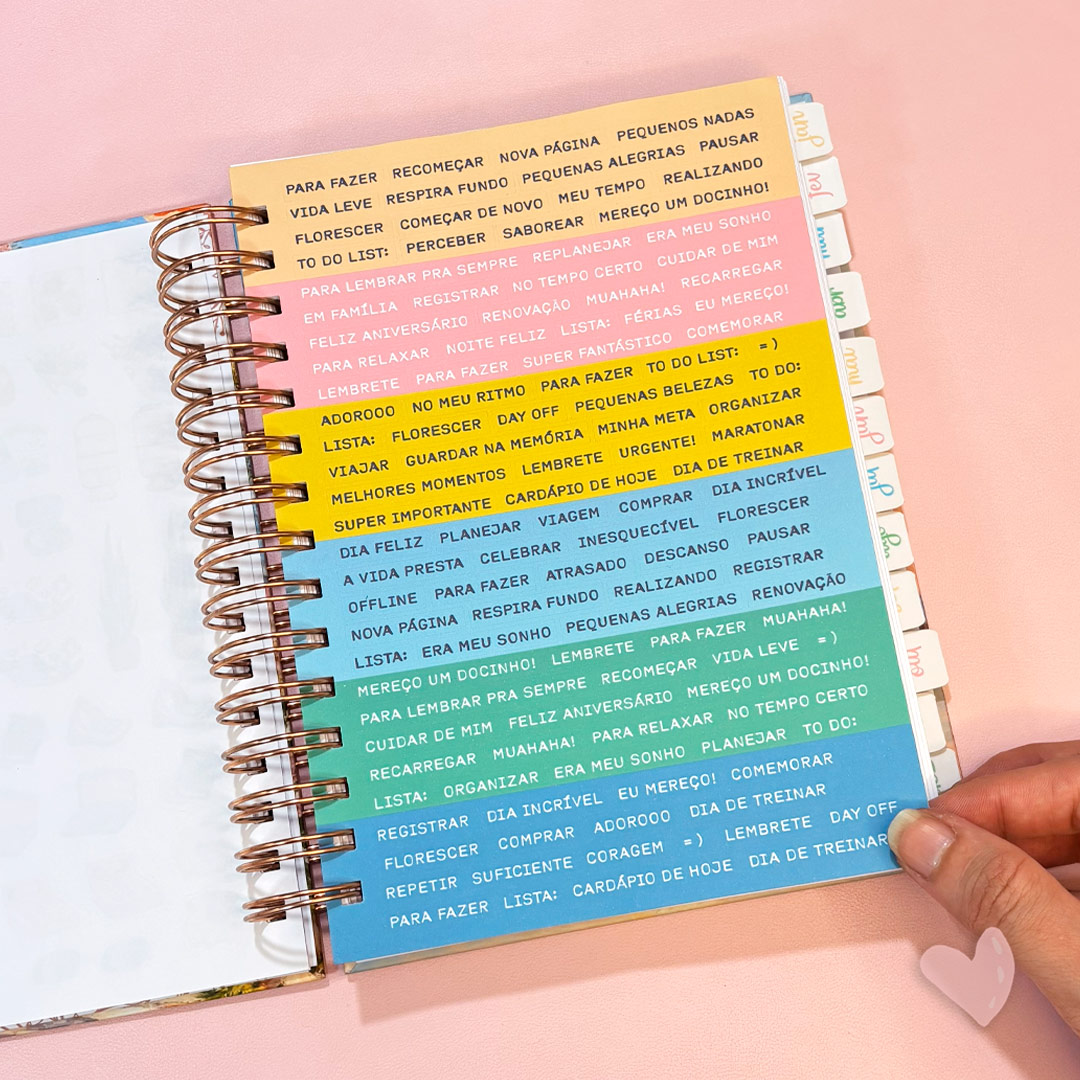 PARA FAZER RECOMEÇAR NOVA PÁGINA PEQUENOS NADAS
VIDA LEVE RESPIRA FUNDO PEQUENAS ALEGRIAS PAUSAR
FLORESCER COMEÇAR DE NOVO MEU TEMPO REALIZANDO
TO DO LIST: PERCEBER SABOREAR MEREÇO UM DOCINHO!
PARA LEMBRAR PRA SEMPRE REPLANEJAR ERA MEU SONHO
EM FAMÍLIA REGISTRAR NO TEMPO CERTO CUIDAR DE MIM
FELIZ ANIVERSÁRIO RENOVAÇÃO MUAHAHA! RECARREGAR
PARA RELAXAR NOITE FELIZ LISTA: FÉRIAS EU MEREÇO!
LEMBRETE PARA FAZER SUPER FANTÁSTICO COMEMORAR
ADOROOO NO MEU RITMO PARA FAZER TO DO LIST: =)
LISTA: FLORESCER DAY OFF PEQUENAS BELEZAS TO DO:
VIAJAR GUARDAR NA MEMÓRIA MINHA META ORGANIZAR
MELHORES MOMENTOS LEMBRETE URGENTE! MARATONAR
SUPER IMPORTANTE CARDÁPIO DE HOJE DIA DE TREINAR
DIA FELIZ PLANEJAR VIAGEM COMPRAR DIA INCRÍVEL
A VIDA PRESTA CELEBRAR INESQUECÍVEL FLORESCER
OFFLINE PARA FAZER ATRASADO DESCANSO PAUSAR
NOVA PÁGINA RESPIRA FUNDO REALIZANDO REGISTRAR
LISTA: ERA MEU SONHO PEQUENAS ALEGRIAS RENOVAÇÃO
MEREÇO UM DOCINHO! LEMBRETE PARA FAZER MUAHAHA!
PARA LEMBRAR PRA SEMPRE RECOMEÇAR VIDA LEVE =)
CUIDAR DE MIM FELIZ ANIVERSÁRIO MEREÇO UM DOCINHO!
RECARREGAR MUAHAHA! PARA RELAXAR NO TEMPO CERTO
LISTA: ORGANIZAR ERA MEU SONHO PLANEJAR TO DO:
REGISTRAR DIA INCRÍVEL EU MEREÇO! COMEMORAR
FLORESCER COMPRAR ADOROOO DIA DE TREINAR
REPETIR SUFICIENTE CORAGEM =) LEMBRETE DAY OFF
PARA FAZER LISTA: CARDÁPIO DE HOJE DIA DE TREINAR
jan
fev
mar
abr
mai
jun
jul
ago